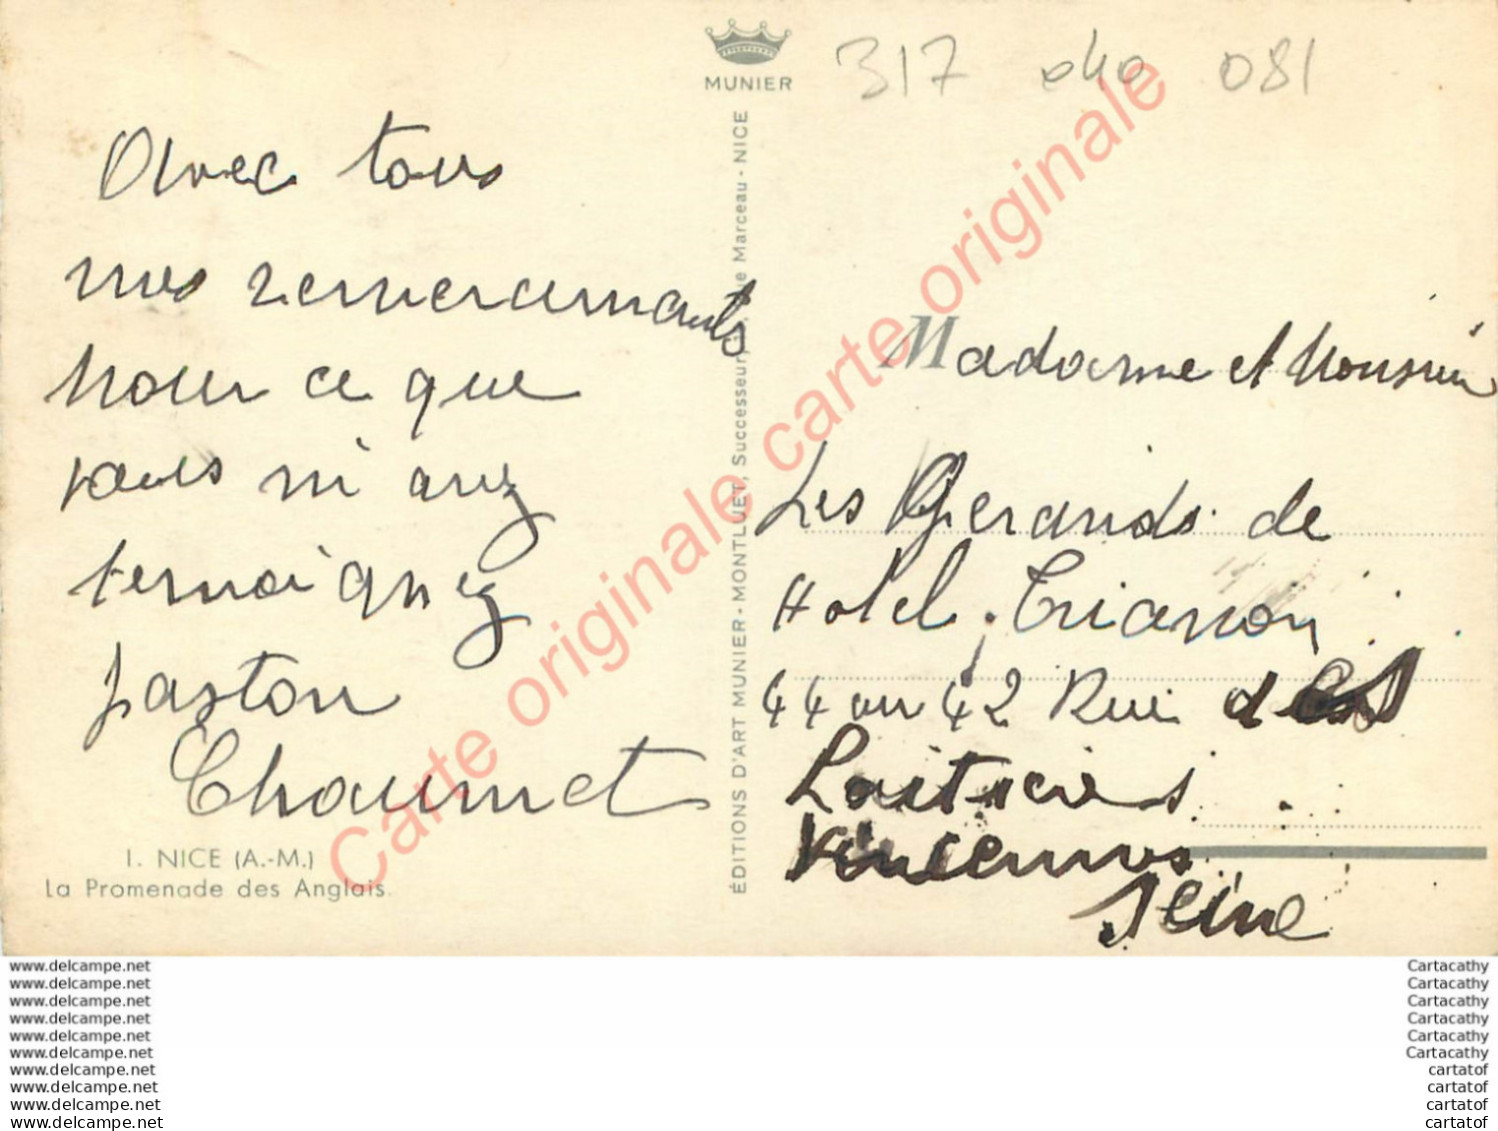 MUNIER
317 040 081
Avec tous
mes remerciments
pour ce que
vous m'avez
temoignez
Gaston
Chaumet
1. NICE (A.-M.)
La Promenade des Anglais
ÉDITIONS D'ART MUNIER - MONTLUET, Successeur, rue Marceau - NICE
Madame et Monsieur
Les Gerands de
Hotel Trianon
44 ou 42 Rue des
Laitieres
Vincennes
Seine
Carte originale carte originale
www.delcampe.net
www.delcampe.net
www.delcampe.net
www.delcampe.net
www.delcampe.net
www.delcampe.net
www.delcampe.net
www.delcampe.net
www.delcampe.net
www.delcampe.net
Cartacathy
Cartacathy
Cartacathy
Cartacathy
Cartacathy
Cartacathy
cartatof
cartatof
cartatof
cartatof